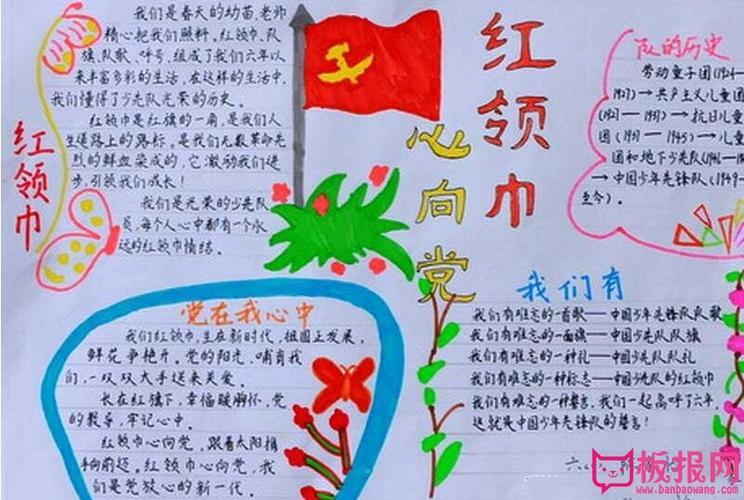 红领巾
我们是春天的幼苗,老师
精心把我们照料,红领巾、队
旗、队歌、呼号,组成了我们六年以
来丰富多彩的生活,在这样的生活中,
我们懂得了少先队光荣的历史。
红领巾是红旗的一角,是我们人
生道路上的路标。是我们无数革命先
烈的鲜血染成的,它激励我们进
步,引领我们成长!
我们是光荣的少先队
员,每个人心中都有一个永
远的红领巾情结。
红领巾
心向党
队的历史
劳动童子团(1924—
1927)→共产主义儿童团
(1927—1931)→抗日儿童
团(1931—1945)→儿童
团和地下少先队(1946—19
→中国少年先锋队(1949—
至今)。
党在我心中
我们红领巾,生在新时代,祖国正发展,
鲜花争艳开。党的阳光,哺育我
们,一双双大手送来关爱。
长在红旗下,幸福暖胸怀,党
的教导,牢记心中。
红领巾心向党,跟着太阳指
向前迈。红领巾心向党,我
们是党放心的新一代。
我们有
我们有难忘的一首歌——中国少年先锋队队歌
我们有难忘的一面旗——中国少先队队旗
我们有难忘的一种礼——中国少先队队礼
我们有难忘的一种标志——中国少先队的红领巾
我们有难忘的一种誓言,我们一起高呼了六年,
这就是中国少年先锋队的誓言!
六
板报网
www.banbaowang.com